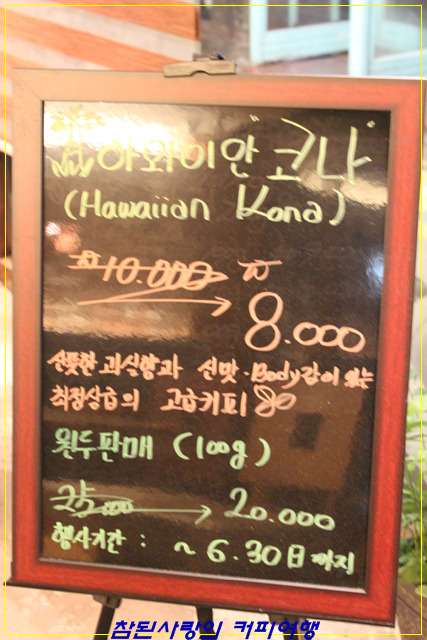 하와이안 "코나"
(Hawaiian Kona)
₩10.000 ₩
8.000
산뜻한 과실향과 신맛·Body감이 있는
최정상급의 고급커피
원두판매 (100g)
25.000 → 20.000
행사기간 : ~ 6.30日까지
참된사랑의 커피여행